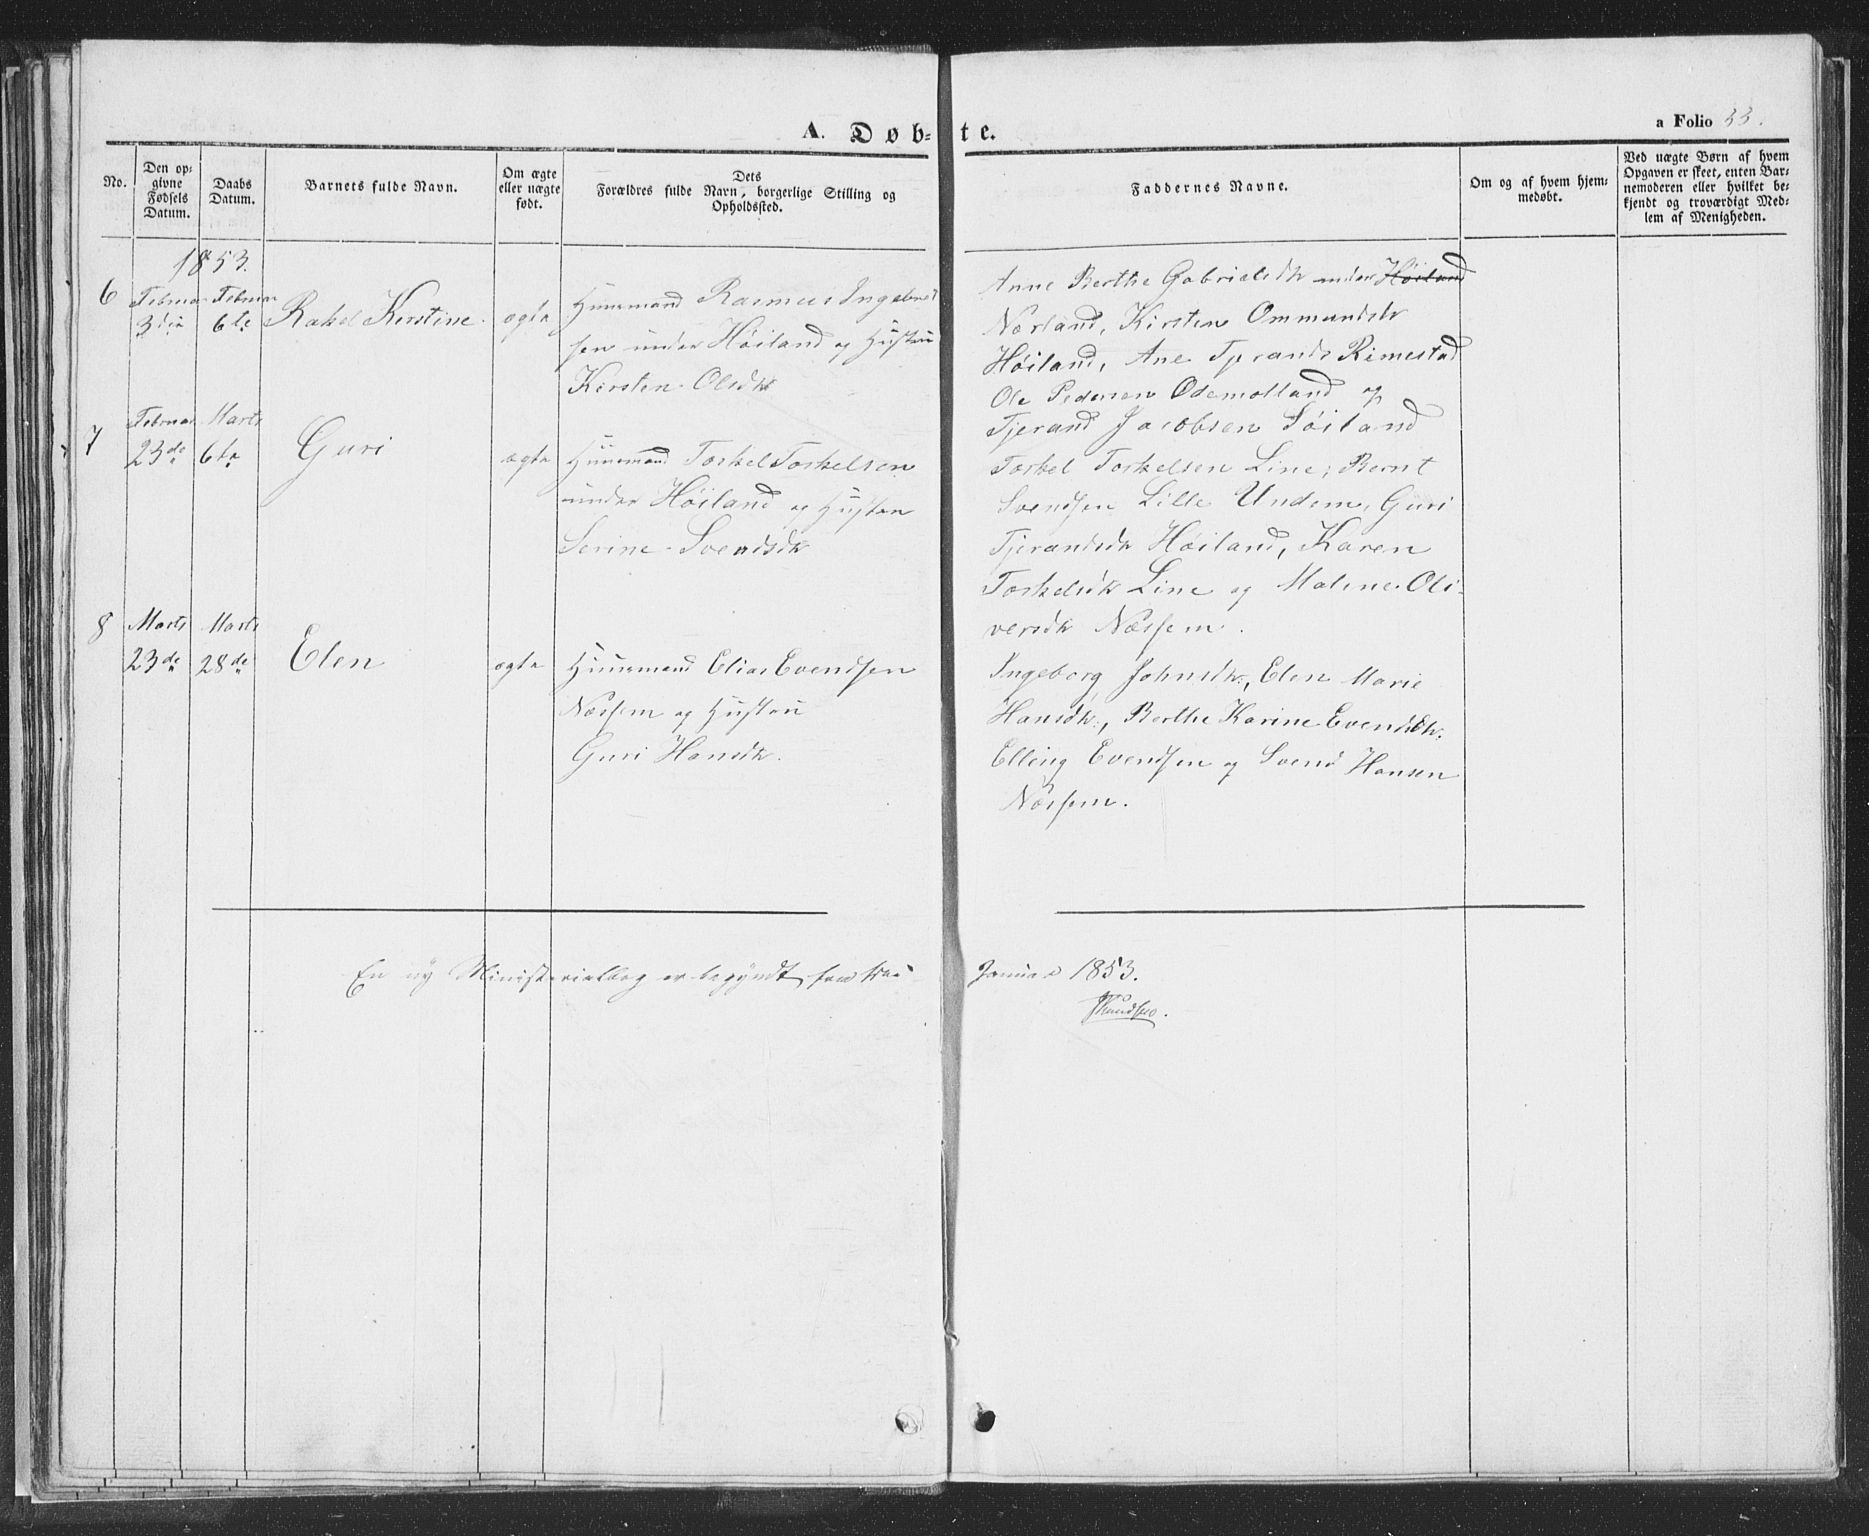 A. Døb-te.
a Folio 33.
No.
Den op-
givne
Fødsels
Datum.
Daabs
Datum.
Barnets fulde Navn.
Om ægte
eller uægte
født.
Dets
Forældres fulde Navn, borgerlige Stilling og
Opholdssted.
Faddernes Navne.
Om og af hvem hjem-
medøbt.
Ved uægte Børn af hvem
Opgaven er skeet, enten Bar-
nemoderen eller hvilket be-
kjendt og troværdigt Med-
lem af Menigheden.
1853.
6
Februar
3die
Februar
6te
Rakel Kirstine
ægte
Huusmand Rasmus Ingebret
sen under Höiland og Hustru
Kirsten Olsdtr
Anne Berthe Gabrielsdtr under Höiland
Nærland, Kirsten Ommundsdtr
Höiland, Ane Tjerands Rimestad
Ole Pedersen Odemotland og
Tjerand Jacobsen Söiland
7
Februar
23de
Marts
6te
Guri
ægte
Huusmand Torkel Torkelsen
under Höiland og Hustru
Serine Svendsdtr
Torkel Torkelsen Line, Bernt
Svendsen Lille Undem, Guri
Tjerandsdtr Höiland, Karen
Torkelsdtr Line og Malene Oli-
versdtr Næssem.
8
Marts
23de
Marts
28de
Elen
ægte
Huusmand Elias Evendsen
Næssem og Hustru
Guri Hansdtr.
Ingeborg Johnsdtr., Elen Marie
Hansdtr., Berthe Karine Evendsdtr.
Elling Evendsen og Svend Hansen
Næssem.
En ny Ministerialbog er begyndt fra 1ste Januar 1853.
Knudsen.